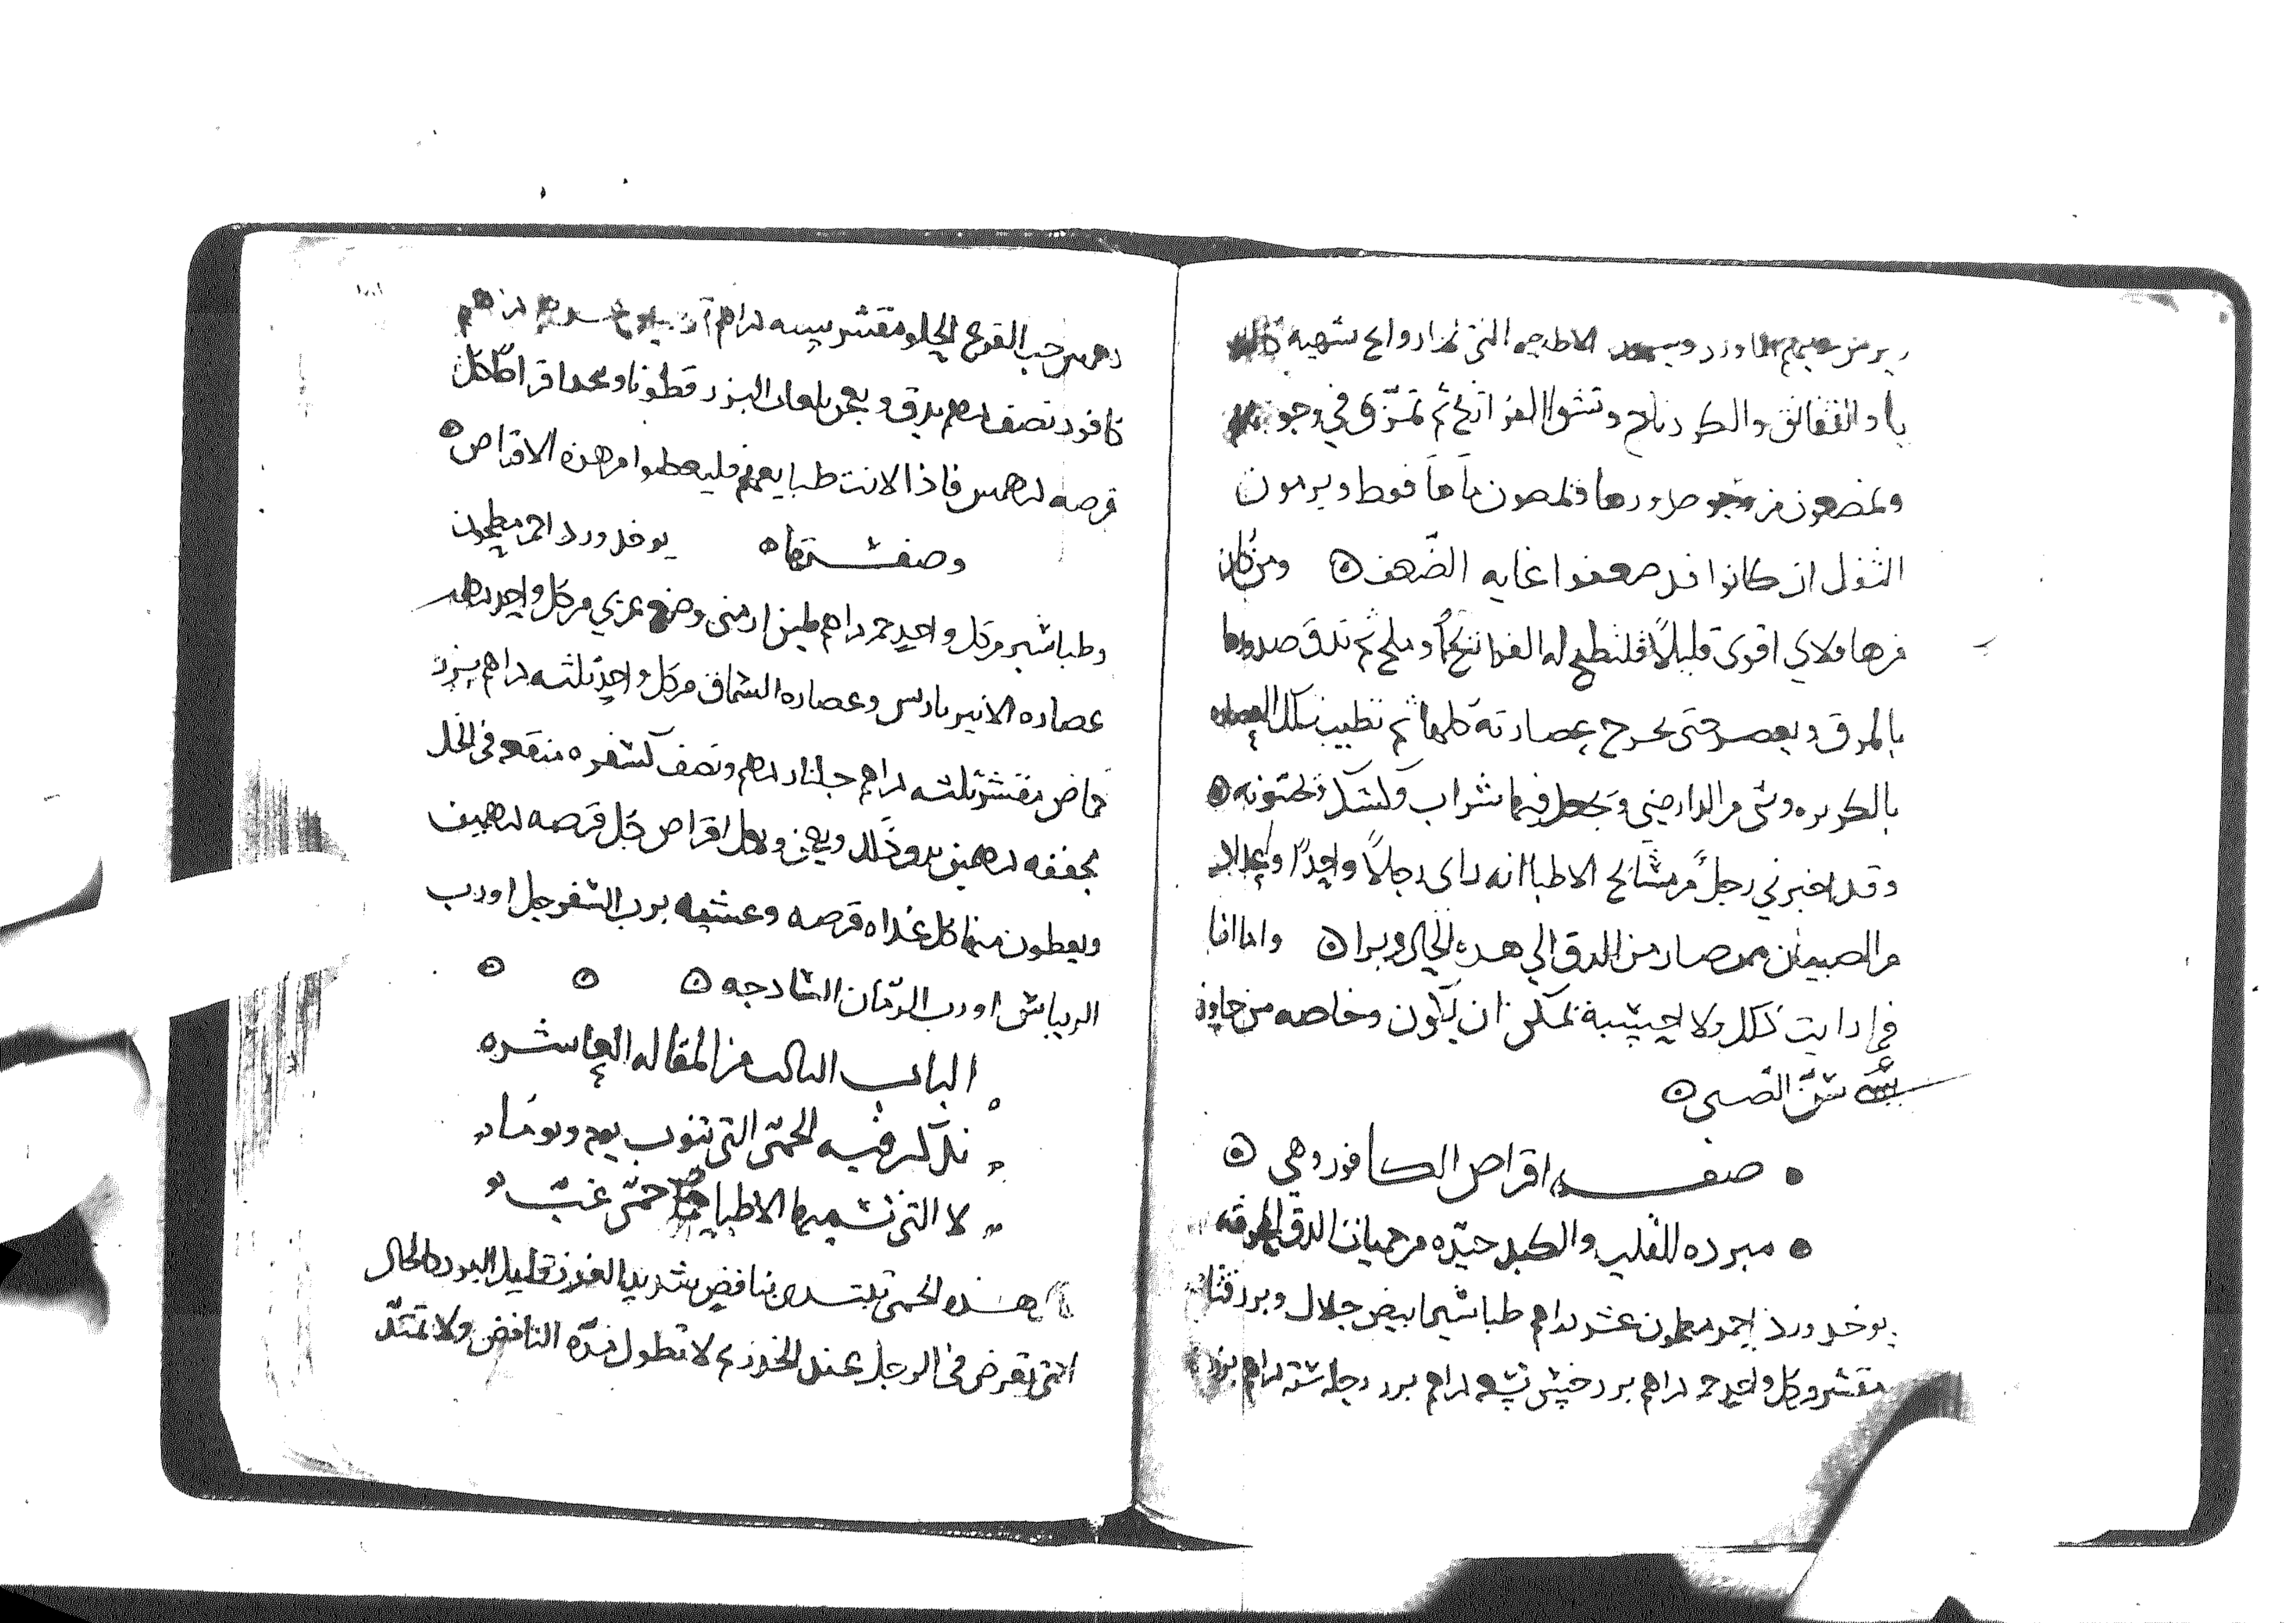 الاطعمه التي لها روايح شهيه
والنقانق والكردناج وتشوا الفراريج ثم تمزق في وجوههم
ويمضعون من وجوه صدورها فيمصون ماها فقط ويرمون
الثفل ان كانوا قد ضعفوا غايه الضعف ومن كان
منها ولاي اقوى قليلاً فلتطبخ له الفراريج وملح ثم تدق صدورها
بالمرق ويعصر حتى يخرج عصارته كلها ثم تطيب تلك العصاره
بالكزبره وشي من الدارصيني ويجعل فيها شراب وكذلك يحتسونه
وقد اخبرني رجل من مشايخ الاطبا انه راى رجلاً واحداً واعداد
من الصبيان ممن صار من الدق الى هذه الحال وبرا واما انا
فما رايت ذلك ولا احسبه يمكن ان يكون وخاصه من جاوز
سن الصبى
صفه اقراص الكافور وهي
مبرده للقلب والكبد جيده من حميات الدق المحرقه
يوخذ ورد احمر مطحون عشر دراهم طباشير ابيض جلال وبزر قثا
مقشر من كل واحد خمسه دراهم بزر خس تسعه دراهم بزر رجله سته دراهم بزر
حب القرع الحلو مقشر سته دراهم
كافور نصف درهم يدق ويعجن بلعاب البزر قطونا ويتخذ اقراصا كل
قرصه درهمين فاذا لانت طبايعهم فليعطوا من هذه الاقراص
وصفتها يوخذ ورد احمر مطحون
وطباشير من كل واحد خمسه دراهم طين ارمني وصمغ عربي من كل واحد درهم
عصاره الانبرباريس وعصاره السماق من كل واحد ثلثه دراهم بزر
حماض مقشر ثلثه دراهم جلنار درهم ونصف كسفره منقعه في الخل
مجففه درهمين يدق ذلك ويعجن ويعمل اقراص كل قرصه درهمين
ويعطون منها كل غداه قرصه وعشيه برب السفرجل او رب
الريباس او رب الرمان الساذجه
الباب الثالث من المقاله العاشره
نذكر فيه الحمى التي تنوب يوم ويوما
لا التي تسميها الاطبا حمى غب
هذه الحمى تبتدى بنافض شديد الغرز قليل البرد كالحال
التي تعرض في الرجل عند الخدر ثم لا تطول مده النافض ولا تمتد